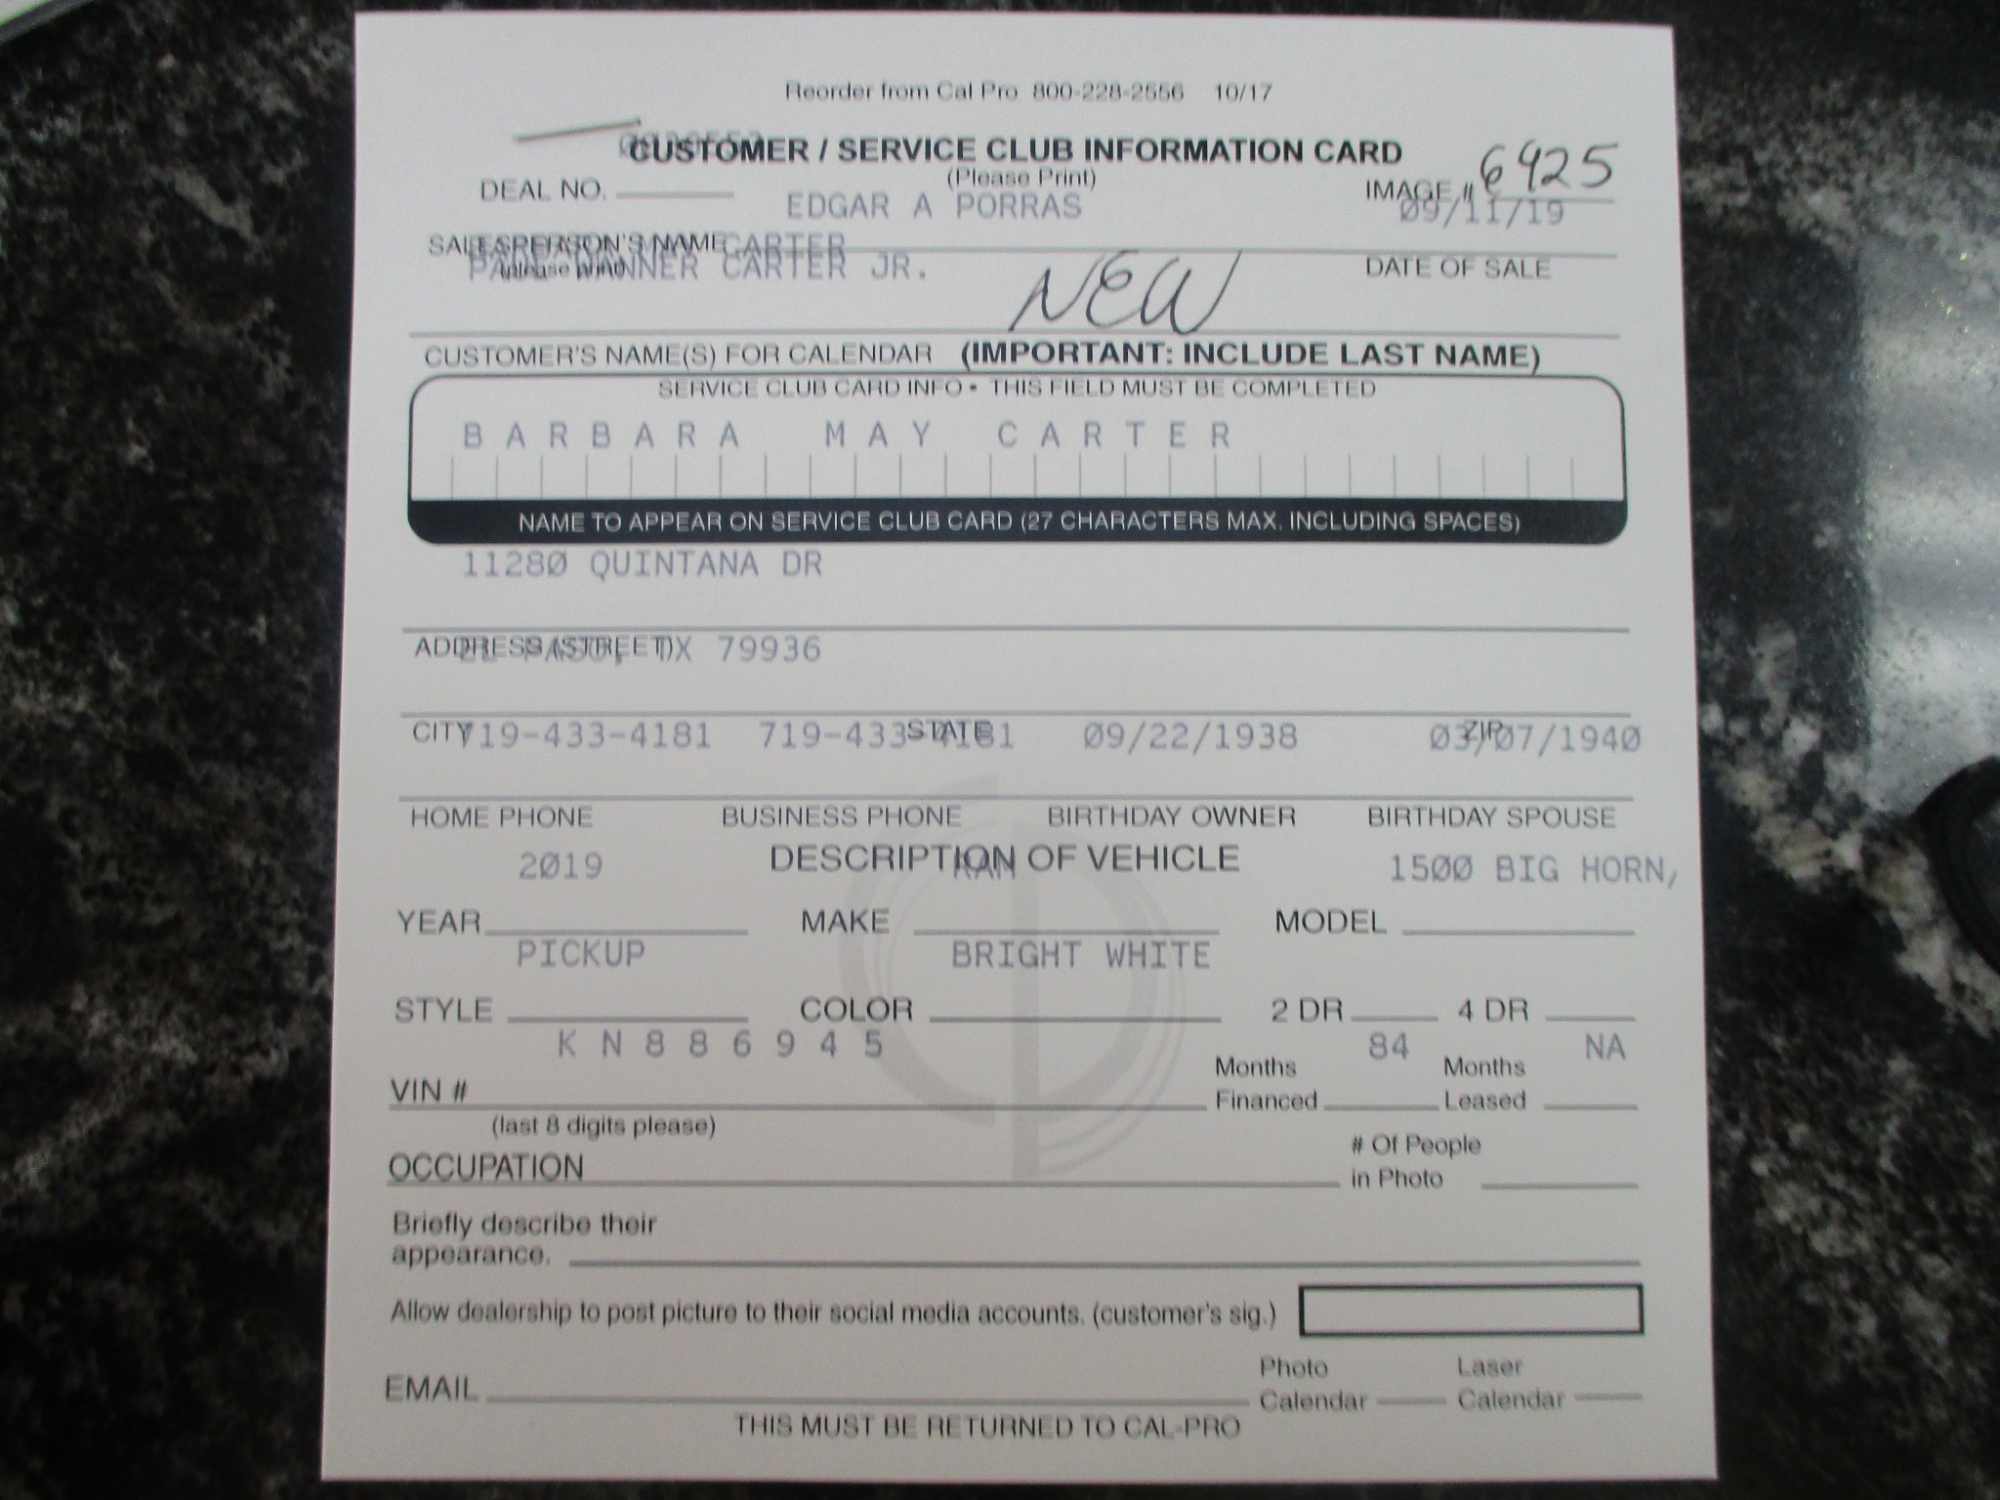 Reorder from Cal Pro 800-228-2556 10/17
CUSTOMER / SERVICE CLUB INFORMATION CARD
(Please Print)
DEAL NO. IMAGE # 6925
EDGAR A PORRAS 09/11/19
SALESPERSON'S NAME CARTER
(please print) DATE OF SALE
DANNER CARTER JR.
NEW
CUSTOMER'S NAME(S) FOR CALENDAR (IMPORTANT: INCLUDE LAST NAME)
SERVICE CLUB CARD INFO • THIS FIELD MUST BE COMPLETED
BARBARA MAY CARTER
NAME TO APPEAR ON SERVICE CLUB CARD (27 CHARACTERS MAX. INCLUDING SPACES)
11280 QUINTANA DR
ADDRESS (STREET)
TX 79936
CITY STATE ZIP
719-433-4181 719-433-4181 09/22/1938 03/07/1940
HOME PHONE BUSINESS PHONE BIRTHDAY OWNER BIRTHDAY SPOUSE
DESCRIPTION OF VEHICLE
2019 RAM 1500 BIG HORN,
YEAR MAKE MODEL
PICKUP BRIGHT WHITE
STYLE COLOR 2 DR 4 DR
KN886945 84 NA
VIN # Months Financed Months Leased
(last 8 digits please)
OCCUPATION # Of People in Photo
Briefly describe their
appearance.
Allow dealership to post picture to their social media accounts. (customer's sig.)
EMAIL Photo Calendar Laser Calendar
THIS MUST BE RETURNED TO CAL-PRO